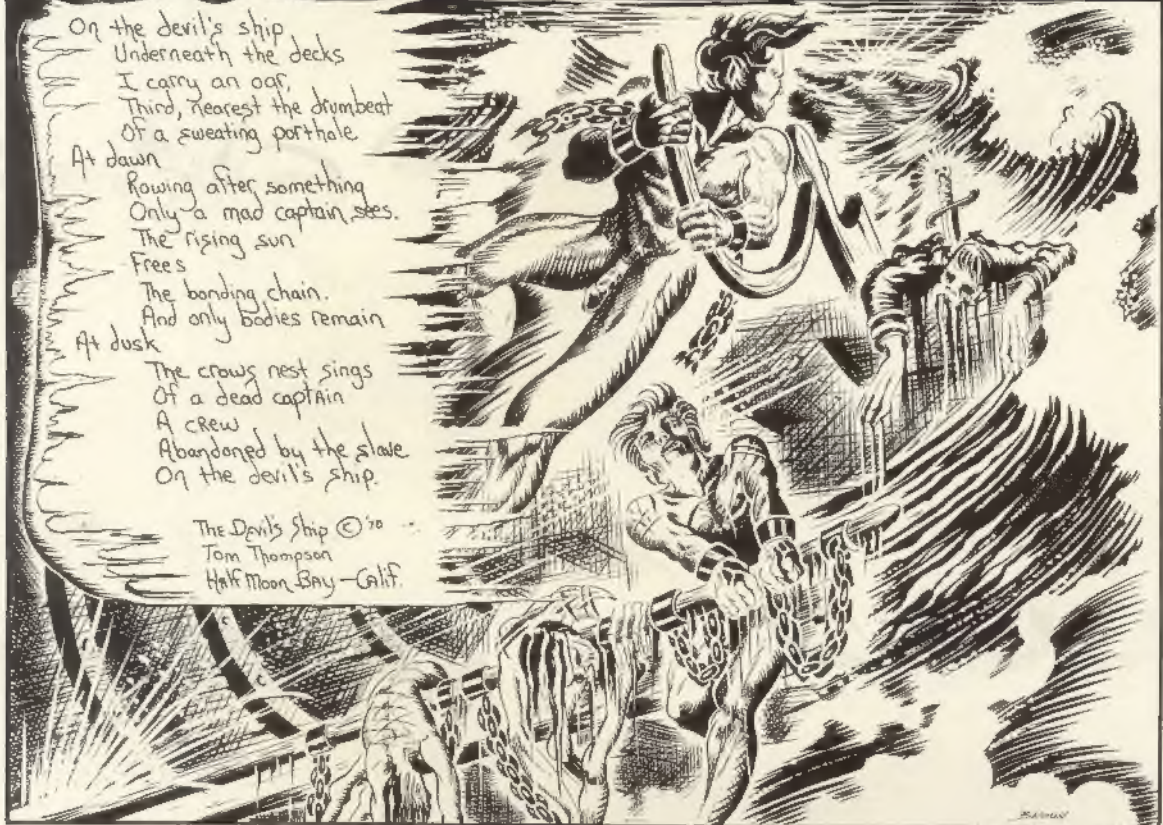 On the devil's ship
Underneath the decks
I carry an oar,
Third, nearest the drumbeat
Of a sweating porthole
At dawn
Rowing after something
Only a mad captain sees.
The rising sun
Frees
The bonding chain.
And only bodies remain
At dusk
The crows nest sings
Of a dead captain
A crew
Abandoned by the slave
On the devil's ship.
The Devil's Ship © '70
Tom Thompson
Half Moon Bay - Calif.